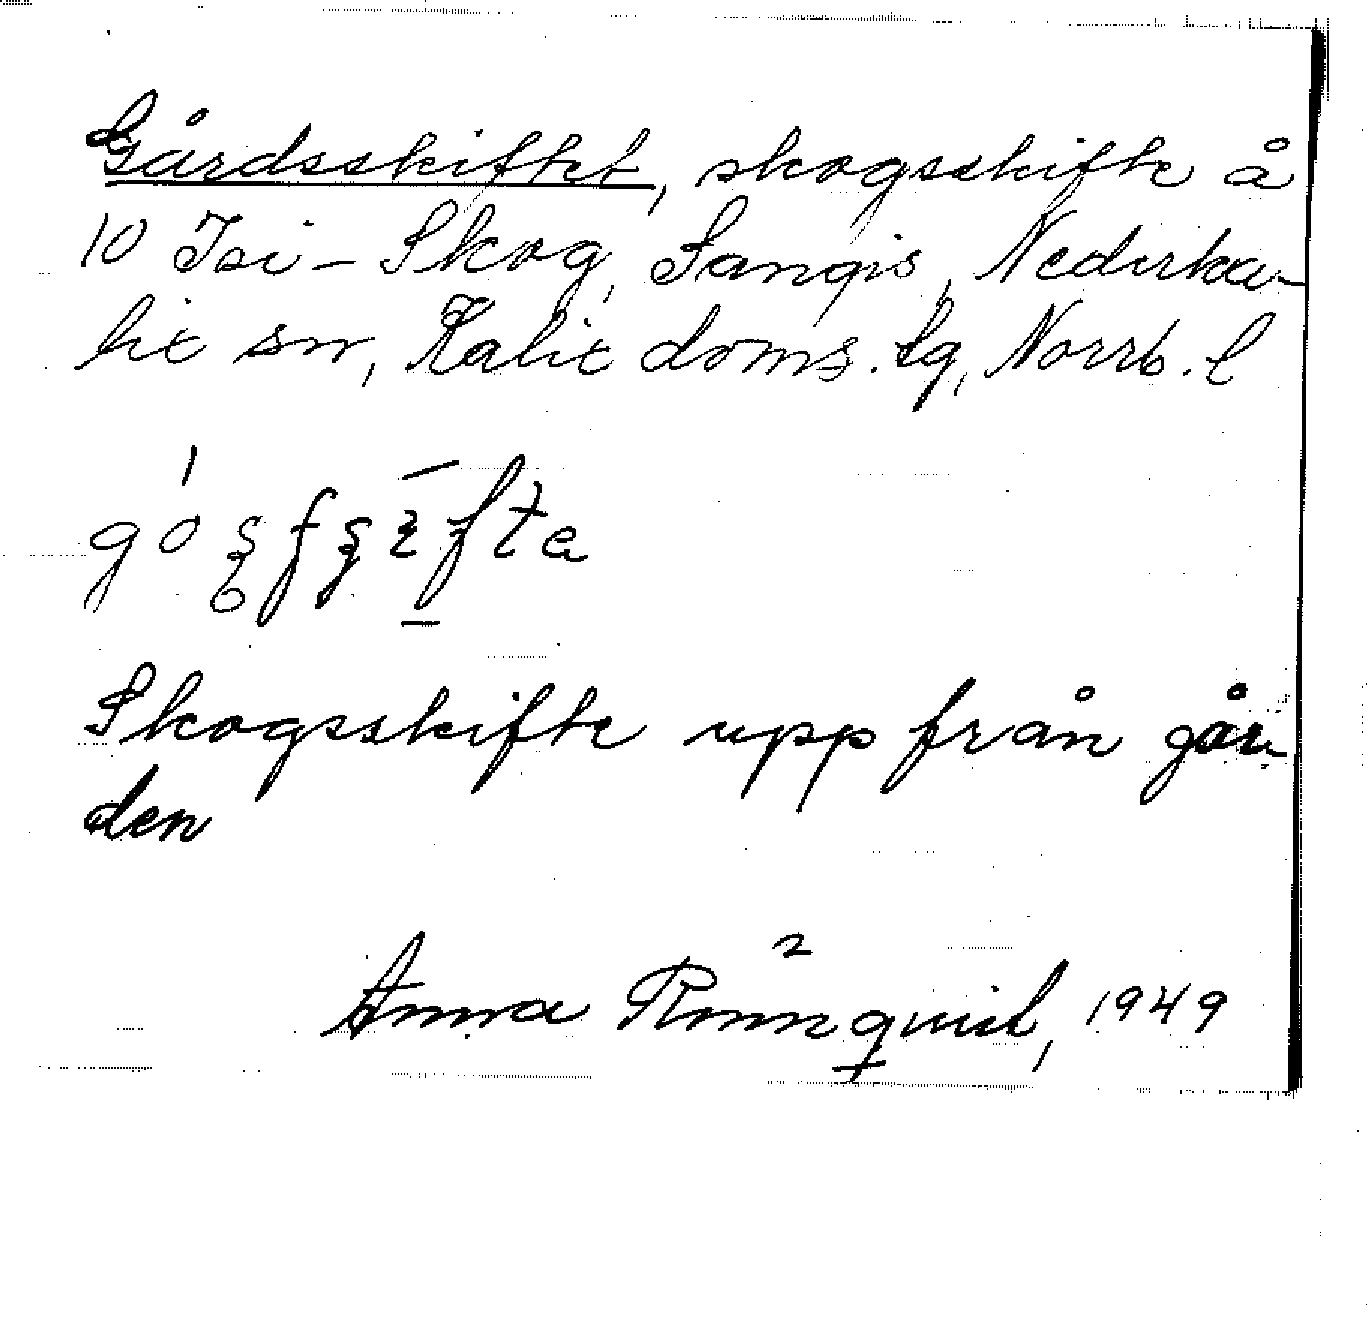 Gårdsskiftet, skogsskifte å
10 Isi-Skog, Sangis, Nederka-
lix sn, Kalix doms. lg, Norrb. l
Skogsskifte upp från går-
den
Anna Rönnqvist, 1949